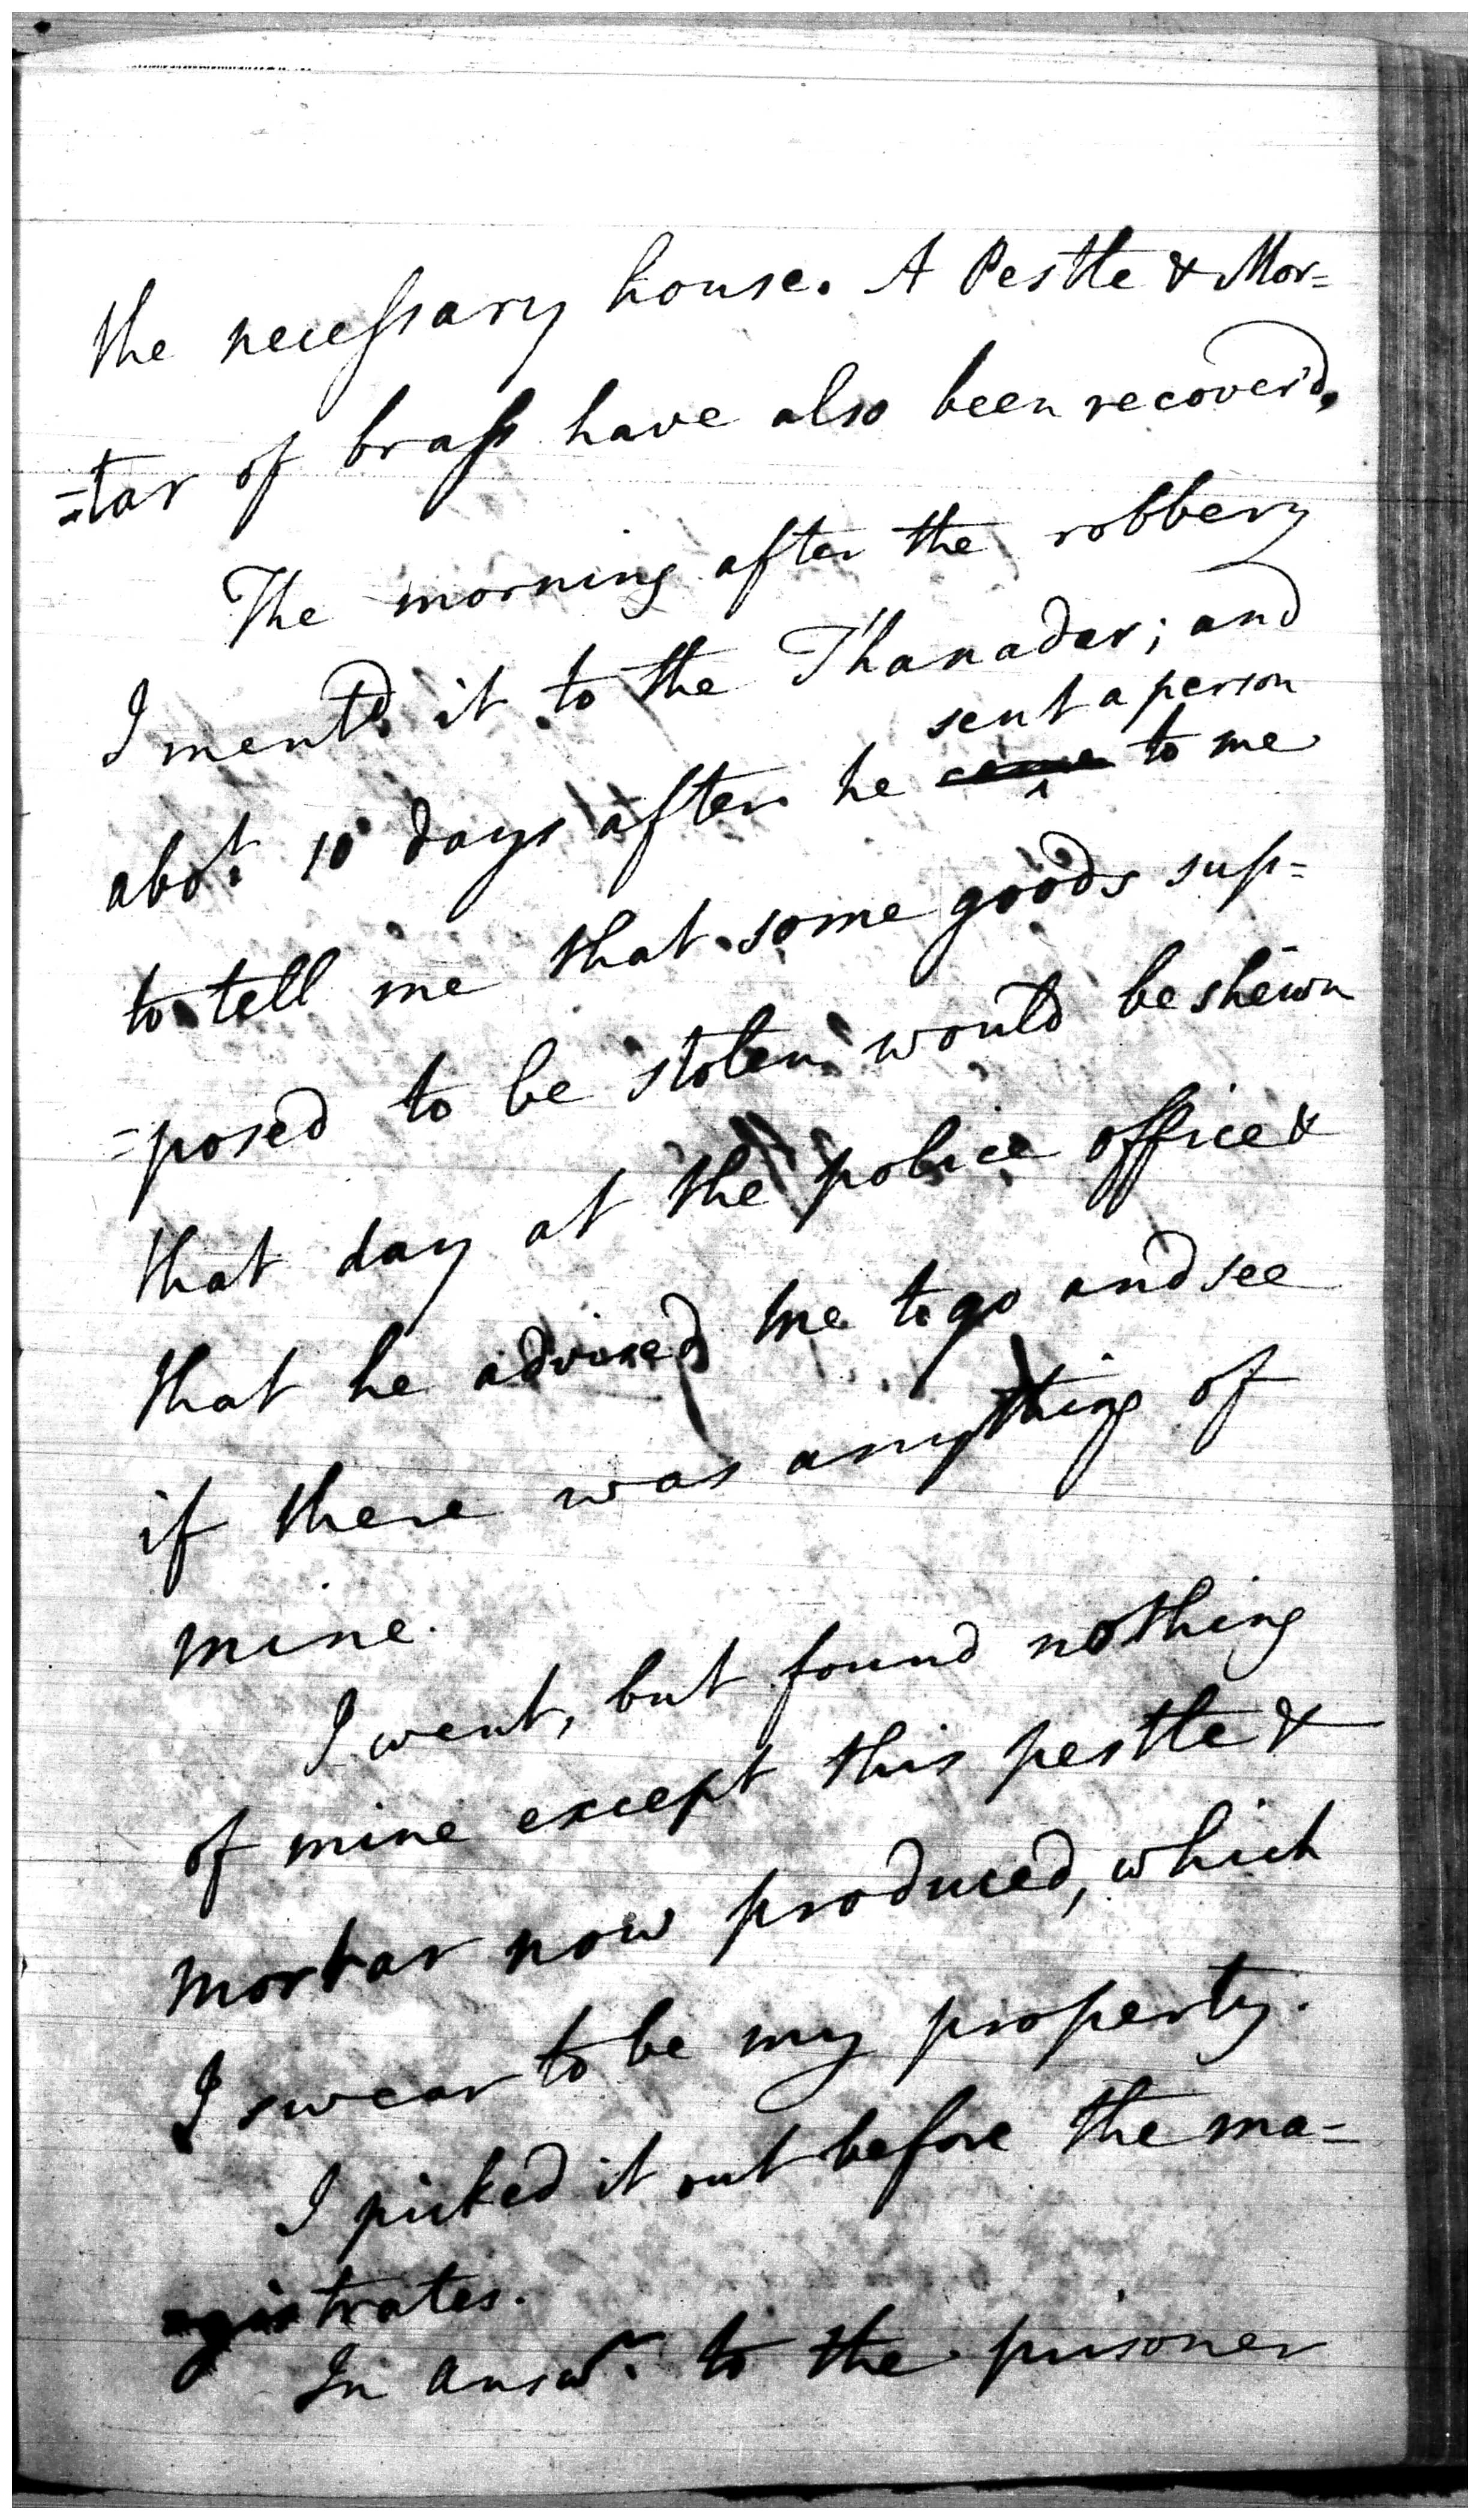 the necessary house. A Pestle & Mor=
=tar of brass have also been recover'd.
The morning after the robbery
I mentd. it to the Thanadar; and
sent a person
abot. 10 days after he came to me
to tell me that some goods sup=
=posed to be stolen would be shewn
that day at the police office &
that he advised me to go and see
if there was anything of
mine.
I went, but found nothing
of mine except this pestle &
mortar now produced, which
I swear to be my property.
I picked it out before the ma=
gistrates.
In answr. to the prisoner